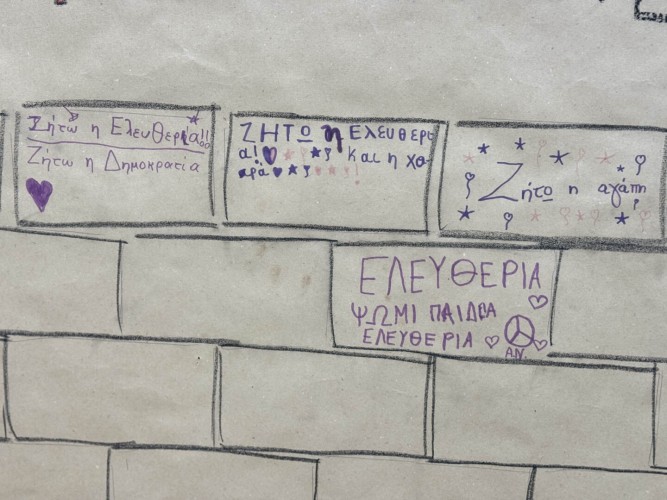 Ζήτω η Ελευθερία!!
Ζήτω η Δημοκρατία
ΖΗΤΟ η Ελευθερι
α! και η χα
ρά !
Ζήτο η αγάπη
ΕΛΕΥΘΕΡΙΑ
ΨΩΜΙ ΠΑΙΔΕΑ
ΕΛΕΥΘΕΡΙΑ
Α.Ν.